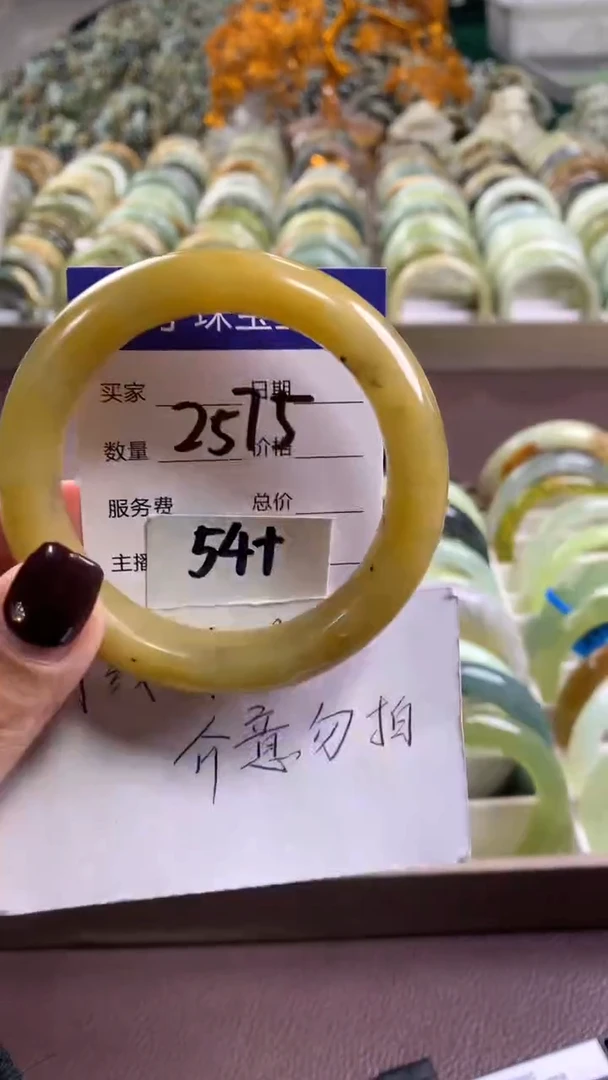 珠宝
买家 日期
2575
数量 价格
服务费 总价
主播
54+
介意勿拍